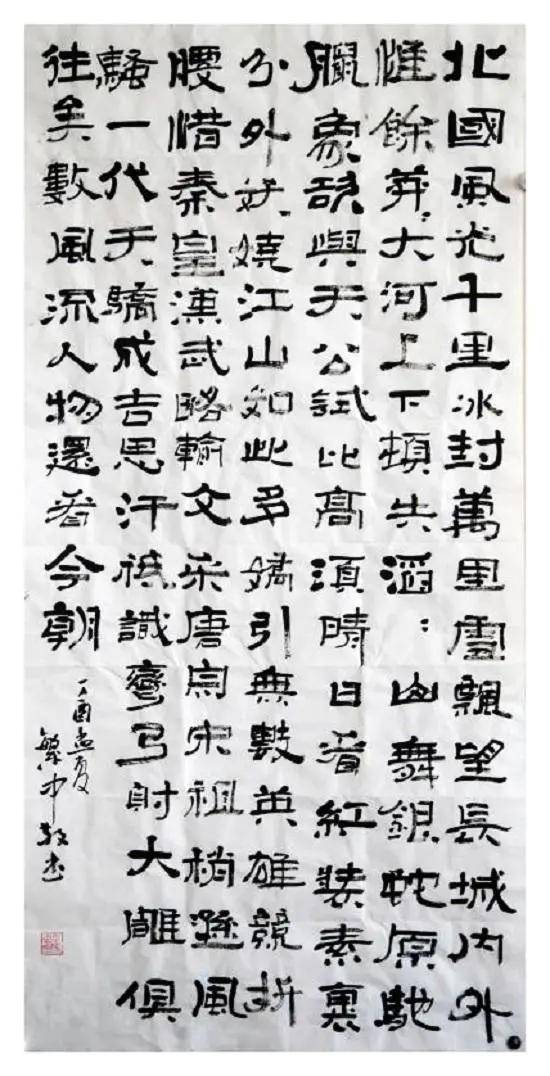 北國風光千里冰封萬里雪飄望長城內外
惟餘莽:大河上下頓失滔:山舞銀蛇原馳
臘象欲與天公試比高須晴日看紅裝素裹
分外妖嬈江山如此多嬌引無數英雄競折
腰惜秦皇漢武略輸文采唐宗宋祖稍遜風
騷一代天驕成吉思汗祗識彎弓射大雕俱
往矣數風流人物還看今朝
丁酉孟夏
繁中敬書